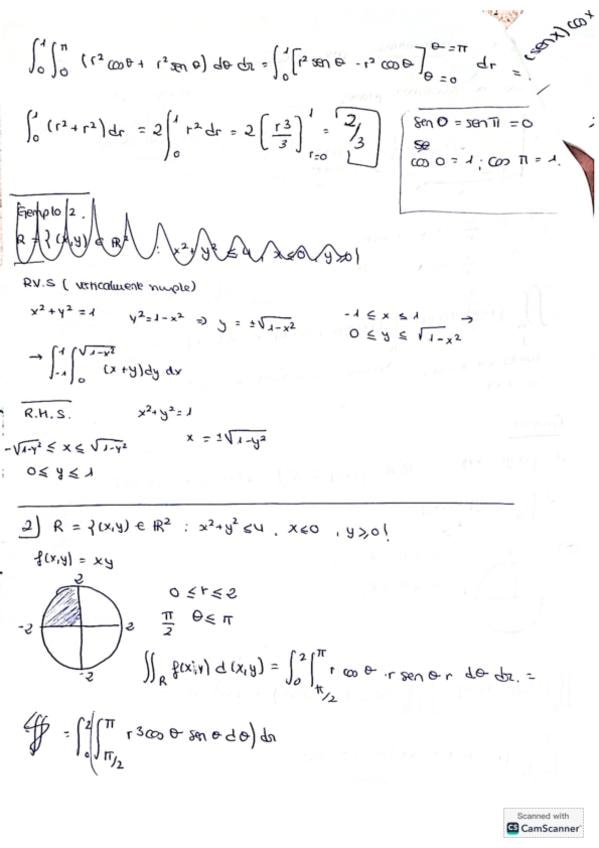 ∫₀¹∫₀^π (r² cos θ + r² sen θ) dθ dr = ∫₀¹ [r² sen θ - r² cos θ]_{θ=0}^{θ=π} dr =
(sen x) cos x
∫₀¹ (r² + r²) dr = 2 ∫₀¹ r² dr = 2 (r³/3)]_{r=0}^{1} = 2/3
sen 0 = sen π = 0
se
cos 0 = 1 ; cos π = 1.
Ejemplo 2.
R = {(x,y) ∈ ℝ² : x² + y² ≤ 4, x ≤ 0, y ≥ 0}
R.V.S (verticalmente simple)
x² + y² = 1 y² = 1 - x² ⇒ y = ±√(1-x²) -1 ≤ x ≤ 1 →
0 ≤ y ≤ √(1-x²)
→ ∫₋₁¹ ∫₀^{√(1-x²)} (x + y) dy dx
R.H.S. x² + y² = 1
-√(1-y²) ≤ x ≤ √(1-y²) x = ±√(1-y²)
0 ≤ y ≤ 1
2) R = {(x,y) ∈ ℝ² : x² + y² ≤ 4, x ≤ 0, y ≥ 0}
f(x,y) = xy
2
-2 2
-2
0 ≤ r ≤ 2
π/2 θ ≤ π
∬_R f(x,y) d(x,y) = ∫₀² ∫_{π/2}^π r cos θ · r sen θ r dθ dr =
= ∫₀² (∫_{π/2}^π r³ cos θ sen θ dθ) dr
Scanned with
CS CamScanner